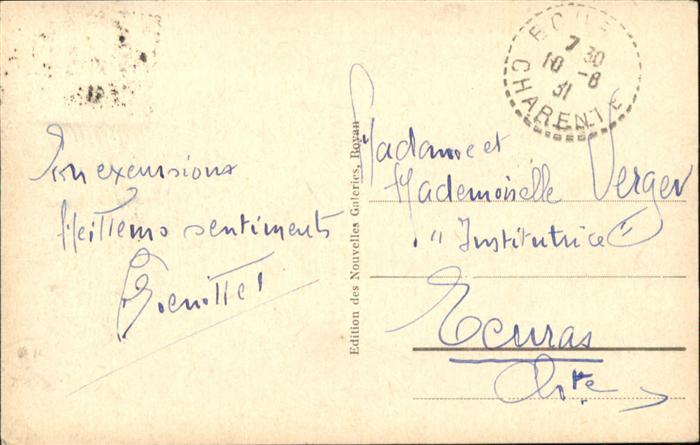 En excursions
Meilleurs sentiments
Edition des Nouvelles Galeries, Royan
7 30
10 -8
31
CHARENTE
Madame et
Mademoiselle Verger
"Institutrice"
Ecuras
Chte